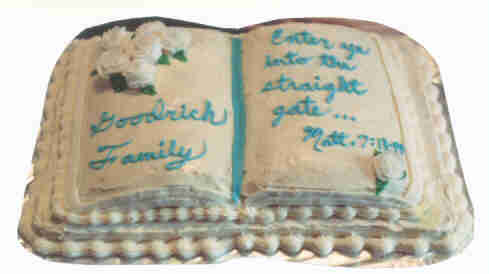 Goodrich
Family
Enter ye
into the
straight
gate...
Matt. 7:13-14